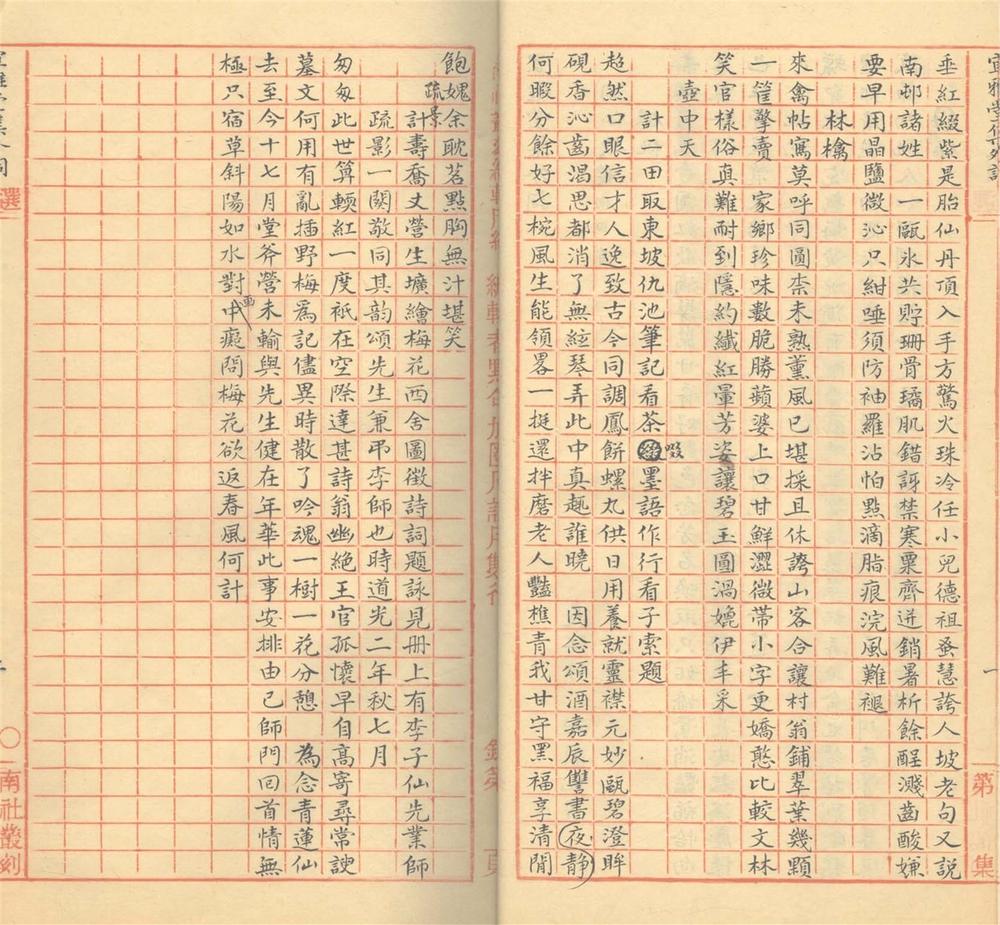 第 集
垂紅綴紫是胎仙丹頂入手方驚火珠冷任小兒德祖蚤慧誇人坡老句又説
南邨諸姓人一甌氷共貯珊骨璚肌錯訝禁寒粟齊迸銷暑析餘酲濺齒酸嫌
要早用晶鹽微沁只紺唾須防袖羅沾怕點滴脂痕浣風難褪
林檎
來禽帖寫莫呼同圓柰未熟薰風已堪採且休誇山客合讓村翁鋪翠葉幾顆
一筐擎賣　家鄉珍味數脆勝蘋婆上口甘鮮澀微帶小字更嬌憨比較文林
笑官樣俗真難耐到隱約纖紅暈芳姿讓碧玉圓渦嬎伊丰采
壺中天
計二田取東坡仇池筆記看茶啜墨語作行看子索題
超然口眼信才人逸致古今同調鳳餅螺丸供日用養就靈襟元妙甌碧澄眸
硯香沁齒渴思都消了無絃琴弄此中真趣誰曉　因念頌酒嘉辰讐書夜靜
何暇分餘好七椀風生能領畧一挺還拌磨老人豔樵青我甘守黑福享清閒
飽媿余耽茗點胸無汁堪笑
疏景
計壽喬丈營生壙繪梅花西舍圖徵詩詞題詠見冊上有李子仙先業師
疏影一闋敬同其韵頌先生兼弔李師也時道光二年秋七月
匆匆此世算輭紅一度衹在空際達甚詩翁幽絕王官孤懷早自高寄尋常諛
墓文何用有亂插野梅爲記儘異時散了吟魂一樹一花分憩　為念青蓮仙
去至今十七月堂斧營未輸與先生健在年華此事安排由已師門回首情無
極只宿草斜陽如水對畫癡問梅花欲返春風何計
選
南社叢刻